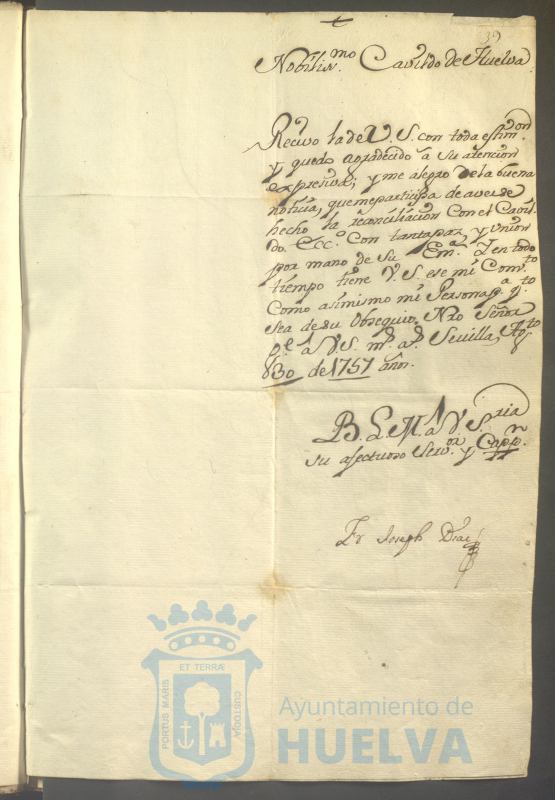 39
Nobiliss.mo Cavildo de Huelva
Recivo la de V. S. con toda estim.on
y quedo agradecido â su atencion
expresiva; y me alegro de la buena
noticia, que me participa de averse
hecho la reconciliacion con el Cavil-
do Ecc.co con tanta paz, y union
por mano de su Em.a Y en todo
tiempo tiene V. S. ese mi Conv.to
como asimismo mi Persona p.a q.to
sea de su obsequio. Nro Señor
g.e â V. S. m.s a.s Sevilla, Ag.to
30 de 1757 años.
B. L. M. â V. S.ria
su afectuoso Serv.or y Capp.n
Fr Joseph Diaz
PORTUS MARIS
ET TERRÆ
CUSTODIA
Ayuntamiento de
HUELVA